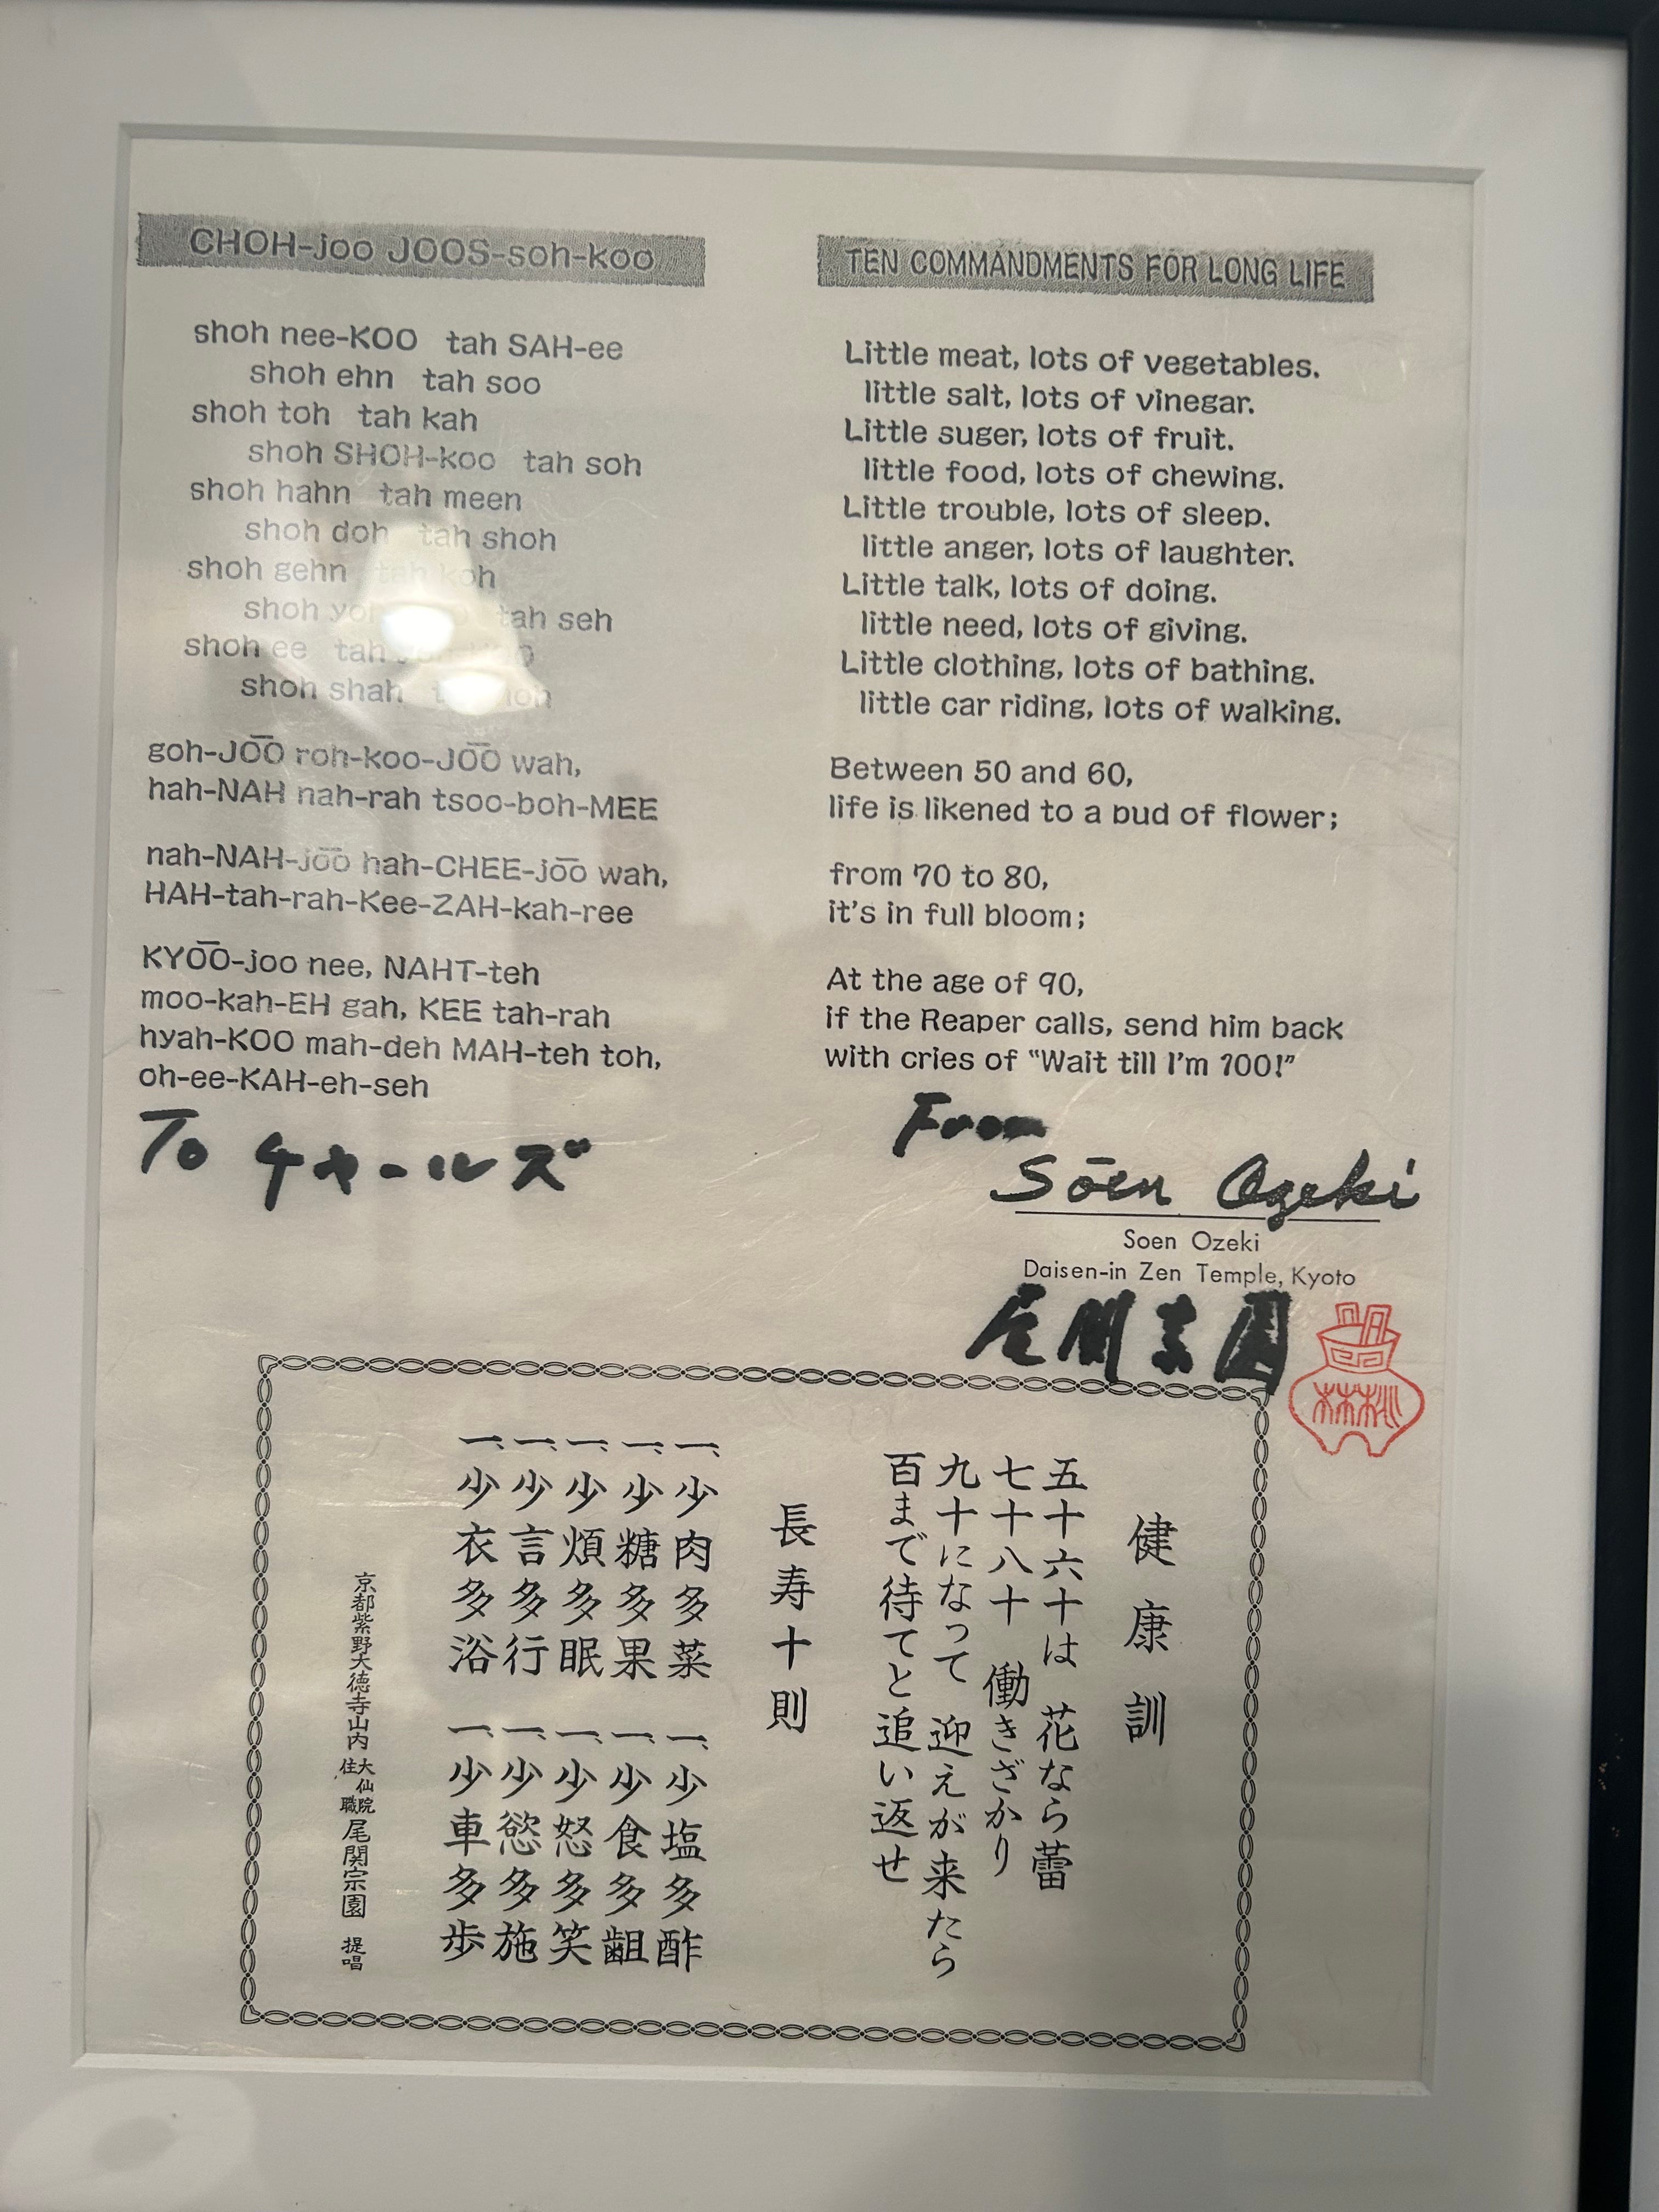 CHOH-joo JOOS-soh-koo
shoh nee-KOO tah SAH-ee
shoh ehn tah soo
shoh toh tah kah
shoh SHOH-koo tah soh
shoh hahn tah meen
shoh doh tah shoh
shoh gehn tah koh
shoh tah seh
shoh ee tah
shoh shah
goh-JO͞O roh-koo-JO͞O wah,
hah-NAH nah-rah tsoo-boh-MEE
nah-NAH-jo͞o hah-CHEE-jo͞o wah,
HAH-tah-rah-Kee-ZAH-kah-ree
KYO͞O-joo nee, NAHT-teh
moo-kah-EH gah, KEE tah-rah
hyah-KOO mah-deh MAH-teh toh,
oh-ee-KAH-eh-seh
To チャールズ
TEN COMMANDMENTS FOR LONG LIFE
Little meat, lots of vegetables.
little salt, lots of vinegar.
Little suger, lots of fruit.
little food, lots of chewing.
Little trouble, lots of sleep.
little anger, lots of laughter.
Little talk, lots of doing.
little need, lots of giving.
Little clothing, lots of bathing.
little car riding, lots of walking.
Between 50 and 60,
life is likened to a bud of flower;
from 70 to 80,
it's in full bloom;
At the age of 90,
if the Reaper calls, send him back
with cries of "Wait till I'm 100!"
From
Sōen Ozeki
Soen Ozeki
Daisen-in Zen Temple, Kyoto
尾関宗園
健康訓
五十六十は 花なら蕾
七十八十 働きざかり
九十になって 迎えが来たら
百まで待てと追い返せ
長寿十則
一、少肉多菜 一、少塩多酢
一、少糖多果 一、少食多齟
一、少煩多眠 一、少怒多笑
一、少言多行 一、少慾多施
一、少衣多浴 一、少車多歩
京都紫野大徳寺山内 大仙院住職 尾関宗園 提唱